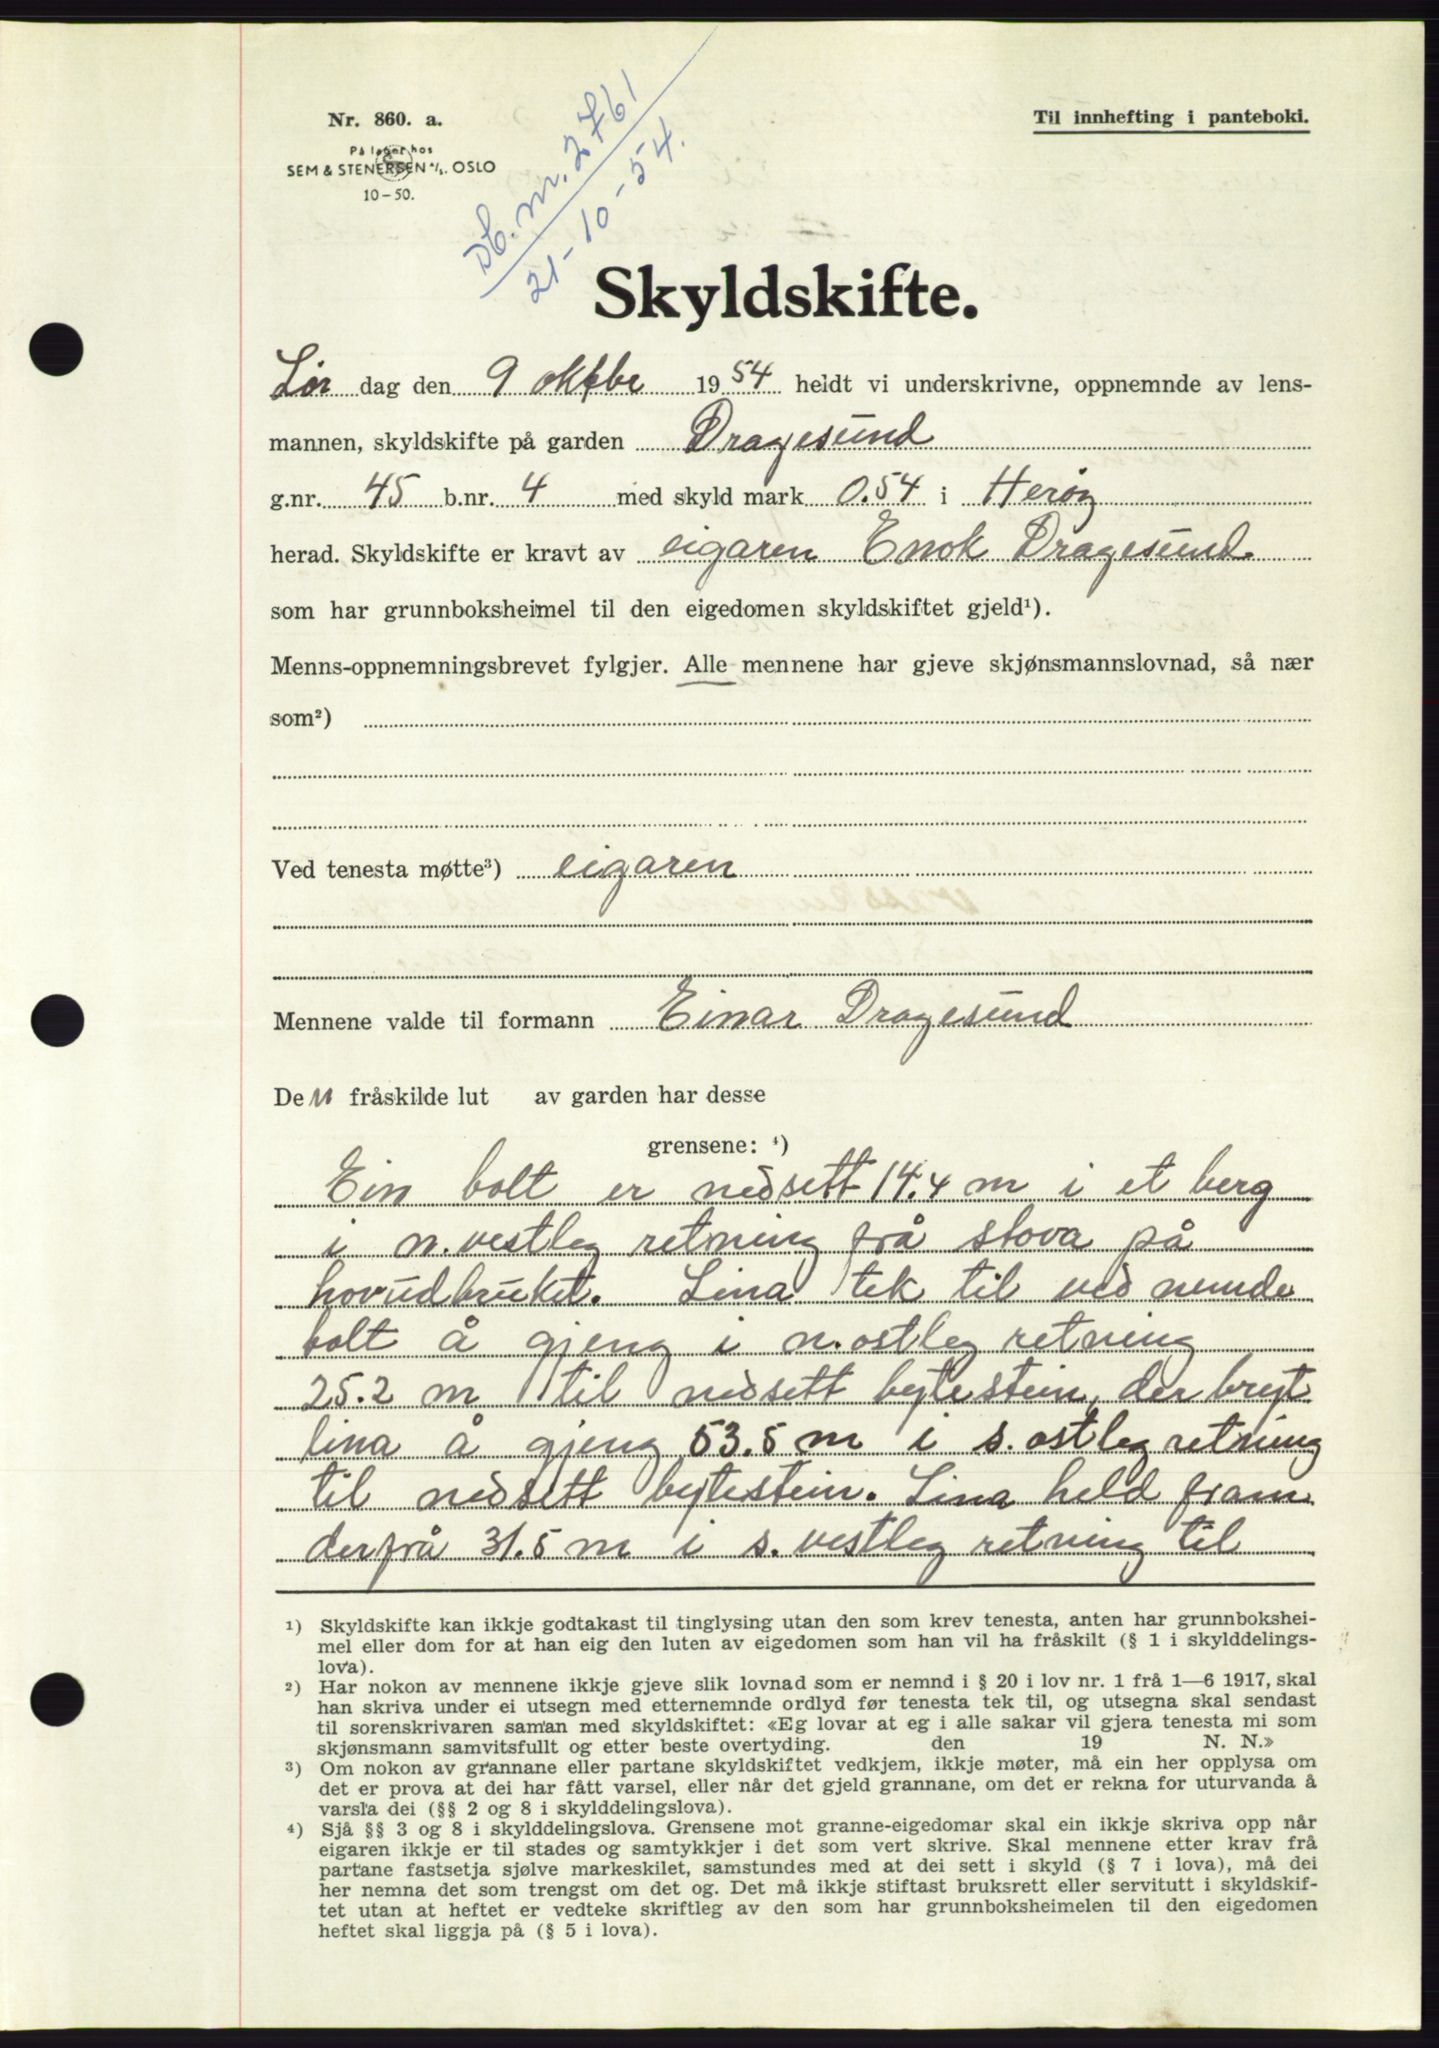 Nr. 860. a.
På lager hos
SEM & STENERSEN A/S. OSLO
10-50.
Db. nr. 2761
21-10-54.
Til innhefting i panteboki.
Skyldskifte.
Lør dag den 9 oktbr 1954 heldt vi underskrivne, oppnemnde av lens-
mannen, skyldskifte på garden Dragesund
g.nr. 45 b.nr. 4 med skyld mark 0.54 i Herøy
herad. Skyldskifte er kravt av eigaren Enok Dragesund
som har grunnboksheimel til den eigedomen skyldskiftet gjeld¹).
Menns-oppnemningsbrevet fylgjer. Alle mennene har gjeve skjønsmannslovnad, så nær
som²)
Ved tenesta møtte³) eigaren
Mennene valde til formann Einar Dragesund
Den fråskilde lut av garden har desse
grensene: ⁴)
Ein bolt er nedsett 14.4 m i et berg
i n.vestleg retning frå stova på
hovudbruket. Lina tek til ved nemnde
bolt å gjeng i n.ostleg retning
25.2 m til nedsett bytestein, der bryt
lina å gjeng 53.5 m i s.ostleg retning
til nedsett bytestein. Lina held fram
derfrå 31.5 m i s.vestleg retning til
¹) Skyldskifte kan ikkje godtakast til tinglysing utan den som krev tenesta, anten har grunnbokshei-
mel eller dom for at han eig den luten av eigedomen som han vil ha fråskilt (§ 1 i skylddelings-
lova).
²) Har nokon av mennene ikkje gjeve slik lovnad som er nemnd i § 20 i lov nr. 1 frå 1—6 1917, skal
han skriva under ei utsegn med etternemnde ordlyd før tenesta tek til, og utsegna skal sendast
til sorenskrivaren saman med skyldskiftet: «Eg lovar at eg i alle sakar vil gjera tenesta mi som
skjønsmann samvitsfullt og etter beste overtyding. den 19 N. N.»
³) Om nokon av grannane eller partane skyldskiftet vedkjem, ikkje møter, må ein her opplysa om
det er prova at dei har fått varsel, eller når det gjeld grannane, om det er rekna for uturvanda å
varsla dei (§§ 2 og 8 i skylddelingslova).
⁴) Sjå §§ 3 og 8 i skylddelingslova. Grensene mot granne-eigedomar skal ein ikkje skriva opp når
eigaren ikkje er til stades og samtykkjer i det som vert skrive. Skal mennene etter krav frå
partane fastsetja sjølve markeskilet, samstundes med at dei sett i skyld (§ 7 i lova), må dei
her nemna det som trengst om det og. Det må ikkje stiftast bruksrett eller servitutt i skyldskif-
tet utan at heftet er vedteke skriftleg av den som har grunnboksheimelen til den eigedomen
heftet skal liggja på (§ 5 i lova).